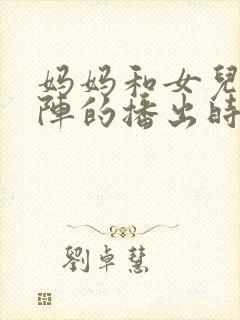 妈妈和女兒
陣的播出時
劉卓慧